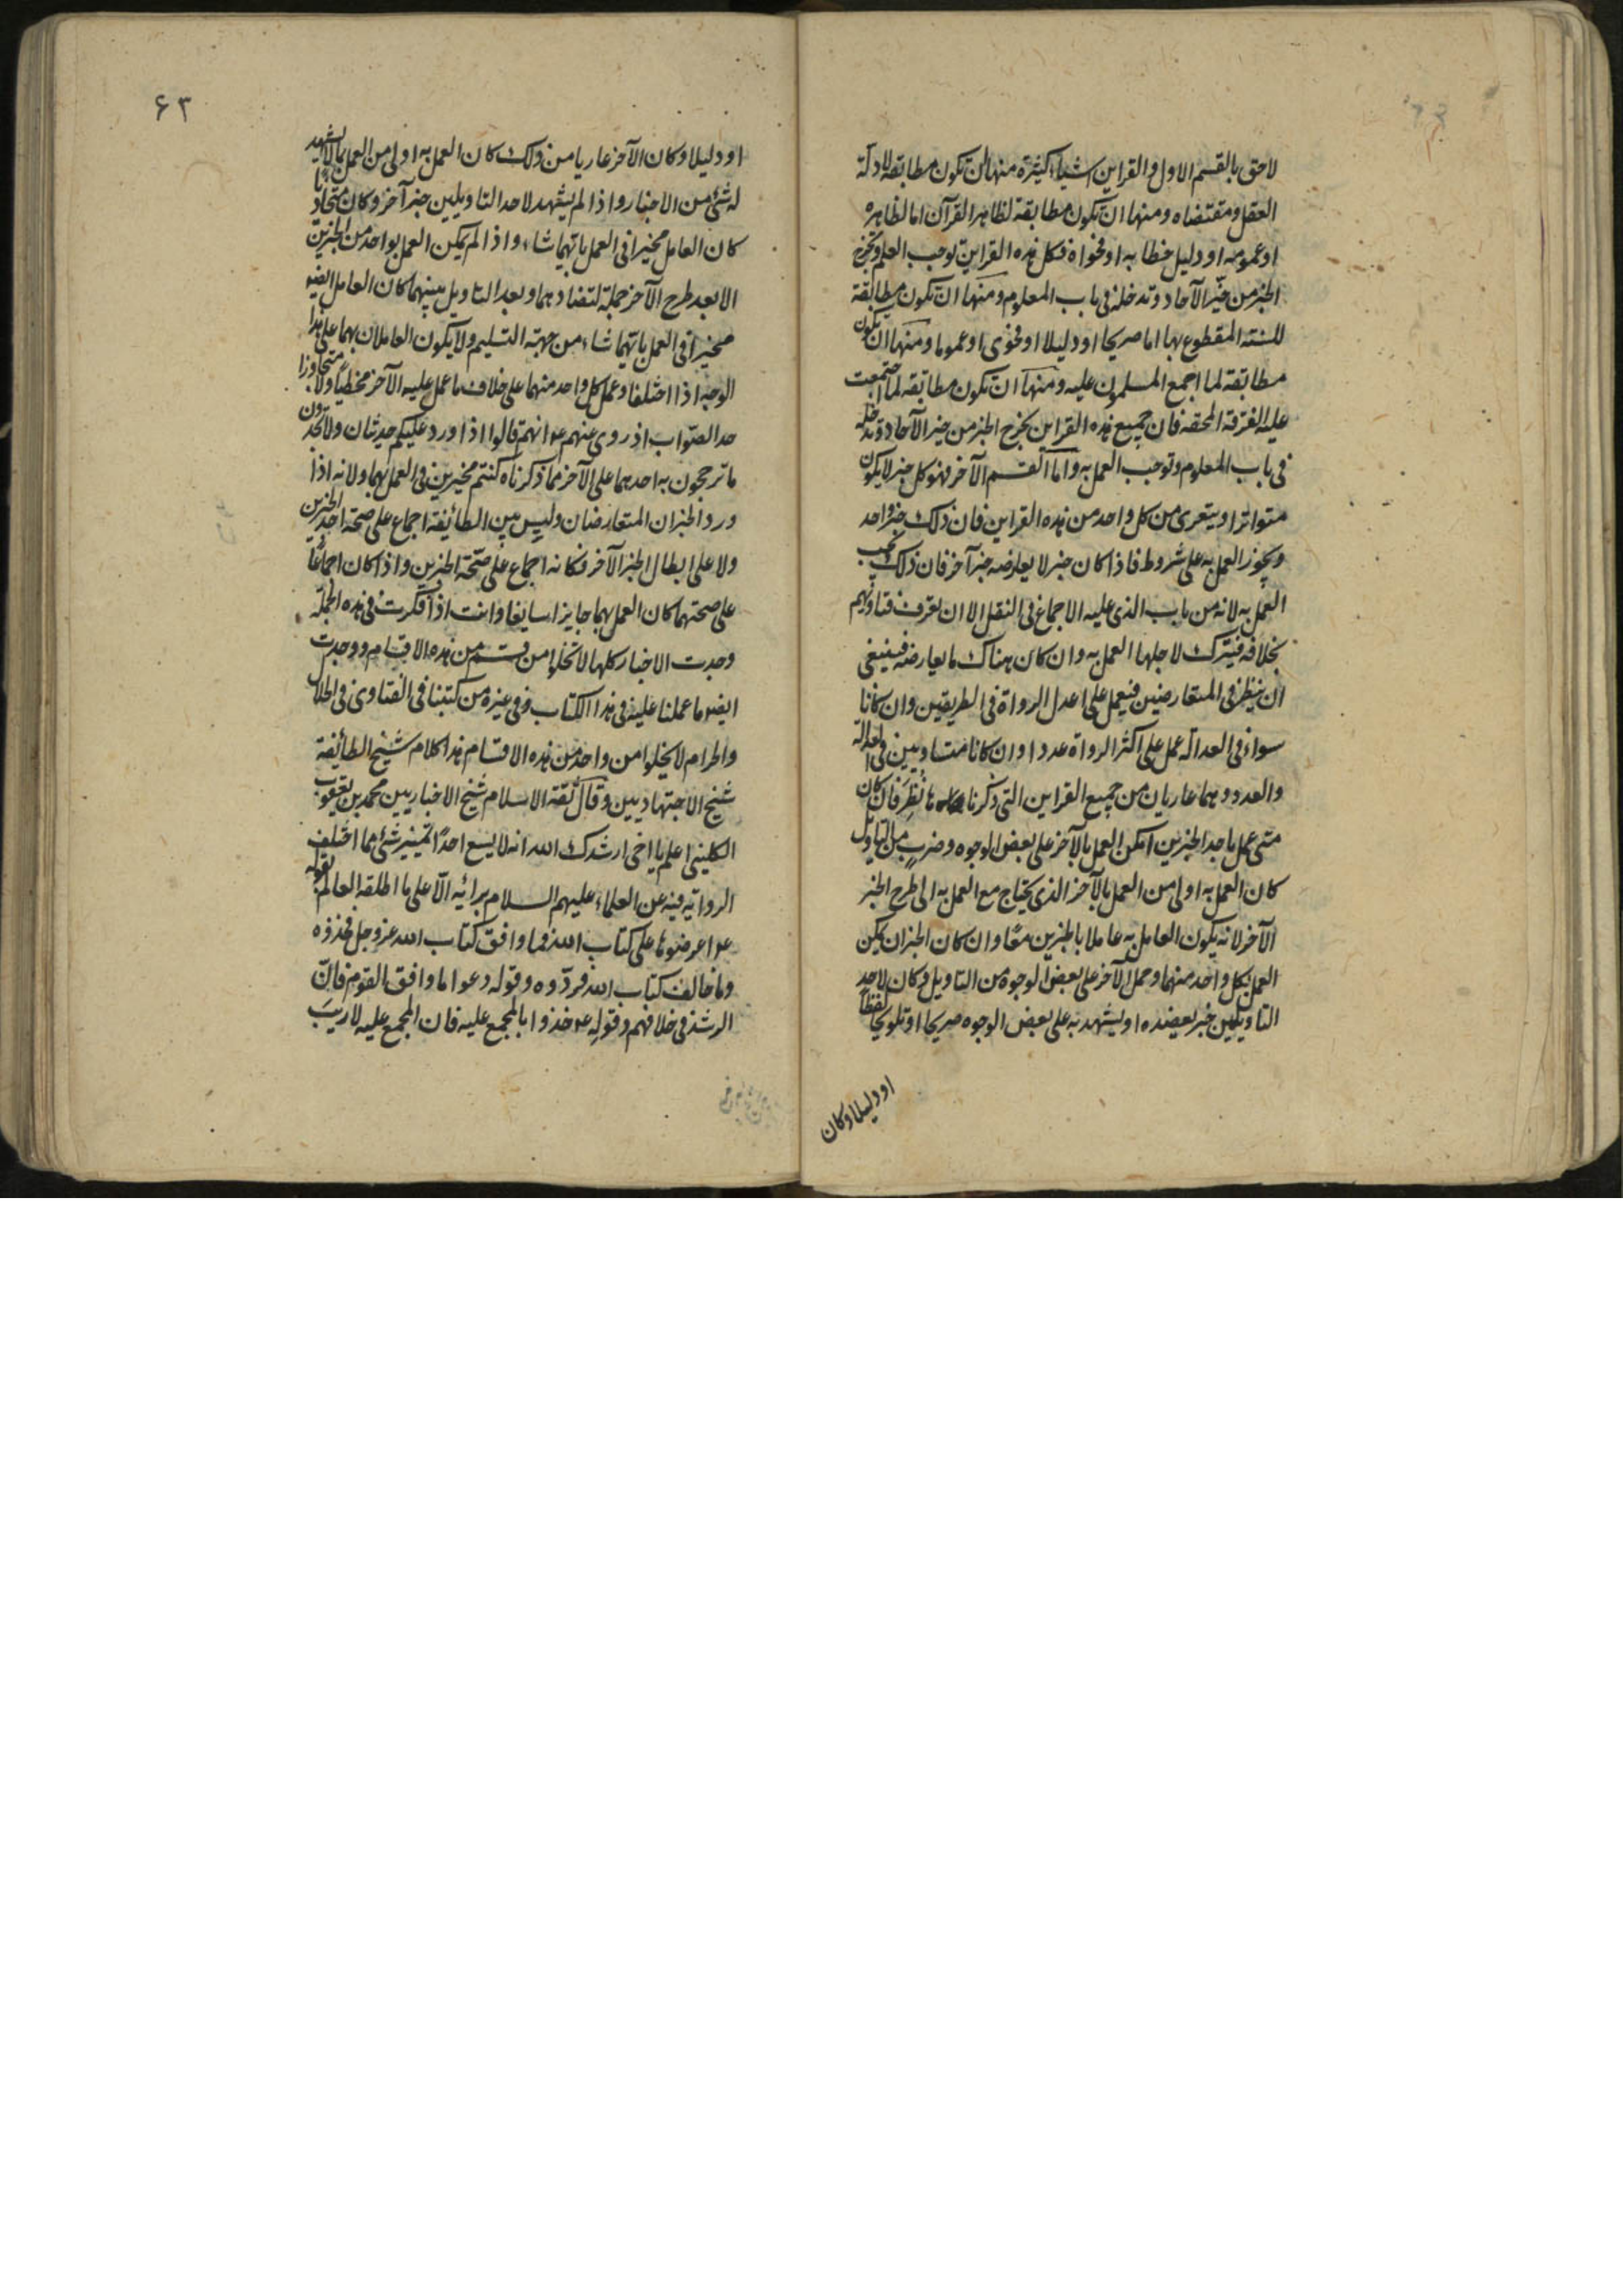 لاحق بالقسم الاول والقراین اشیاء کثیرة منها ان تکون مطابقة لادلة
العقل ومقتضاه ومنها ان تکون مطابقة لظاهر القرآن اما لظاهره
او عمومه او دلیل خطابه او فحواه فکل هذه القراین توجب العلم وتخرج
الخبر من خبر الآحاد وتدخله فی باب المعلوم ومنها ان تکون مطابقة
للسنة المقطوع بها اما صریحا او دلیلا او فحوی او عموما ومنها ان تکون
مطابقة لما اجمع المسلمون علیه ومنها ان تکون مطابقة لما اجتمعت
علیه الفرقة المحقة فان جمیع هذه القراین تخرج الخبر من خبر الآحاد وتدخله
فی باب المعلوم وتوجب العمل به واما القسم الآخر فهو کل خبر لا یکون
متواترا ویتعری من کل واحد من هذه القراین فان ذلک خبر واحد
ویجوز العمل به علی شروط فاذا کان خبر لا یعارضه خبر آخر فان ذلک یجب
العمل به لانه من باب الذی علیه الاجماع فی النقل الا ان تعرف فتاویهم
بخلافه فیترک لاجلها العمل به وان کان هناک ما یعارضه فینبغی
ان ینظر فی المتعارضین فیعمل علی اعدل الرواة فی الطریقین وان کانا
سواء فی العدالة عمل علی اکثر الرواة عددا وان کانا متساویین فی العدالة
والعدد وهما عاریان من جمیع القراین التی ذکرناها نظر فان کان
متی عمل باحد الخبرین امکن العمل بالآخر علی بعض الوجوه وضرب من التاویل
کان العمل به اولی من العمل بالآخر الذی یحتاج مع العمل به الی طرح الخبر
الآخر لانه یکون العامل به عاملا بالخبرین معًا وان کان الخبران یمکن
العمل بکل واحد منهما وحمل الآخر علی بعض الوجوه من التاویل وکان لاحد
التاویلین خبر یعضده او یشهد به علی بعض الوجوه صریحا او تلویحا لفظًا
او دلیلا وکان
۶۳
او دلیلا وکان الآخر عاریا من ذلک کان العمل به اولی من العمل بما لا یشهد
له شئ من الاخبار واذا لم یشهد لاحد التاویلین خبر آخر وکان متحاذیا
کان العامل مخیرا فی العمل بایهما شاء واذا لم یمکن العمل بواحد من الخبرین
الا بعد طرح الآخر جملة لتضادهما وبعد التاویل بینهما کان العامل ایضو
مخیرا فی العمل بایهما شاء من جهة التسلیم ولا یکون العاملان بهما علی هذا
الوجه اذا اختلفا وعمل کل واحد منهما علی خلاف ما عمل علیه الآخر مخطئا ولا متجاوزا
حد الصواب اذ روی عنهم ع انهم قالوا اذا ورد علیکم حدیثان ولا تجدون
ما ترجحون به احدهما علی الآخر مما ذکرناه کنتم مخیرین فی العمل بهما ولانه اذا
ورد الخبران المتعارضان ولیس بین الطائفة اجماع علی صحة احد الخبرین
ولا علی ابطال الخبر الآخر فکانه اجماع علی صحّة الخبرین واذا کان اجماعًا
علی صحتهما کان العمل بهما جایزا سایغا وانت اذا فکرت فی هذه الجملة
وجدت الاخبار کلها لا تخلوا من قسم من هذه الاقسام ووجدت
ایضو ما عملنا علیه فی هذا الکتاب وفی غیره من کتبنا فی الفتاوی فی الحلال
والحرام لا یخلوا من واحد من هذه الاقسام هذا کلام شیخ الطائفة
شیخ الاجتهادیین وقال ثقة الاسلام شیخ الاخباریین محمد بن یعقوب
الکلینی اعلم یا اخی ارشدک الله انه لا یسع احدًا تمییز شئ مما اختلف
الروایة فیه عن العلماء علیهم السلام برائه الّا علی ما اطلقه العالم بقوله
ع اعرضوها علی کتاب الله فما وافق کتاب الله عز وجل فخذوه
وما خالف کتاب الله فردّوه وقوله دعوا ما وافق القوم فانّ
الرشد فی خلافهم وقوله ع خذوا بالمجمع علیه فان المجمع علیه لا ریبَ